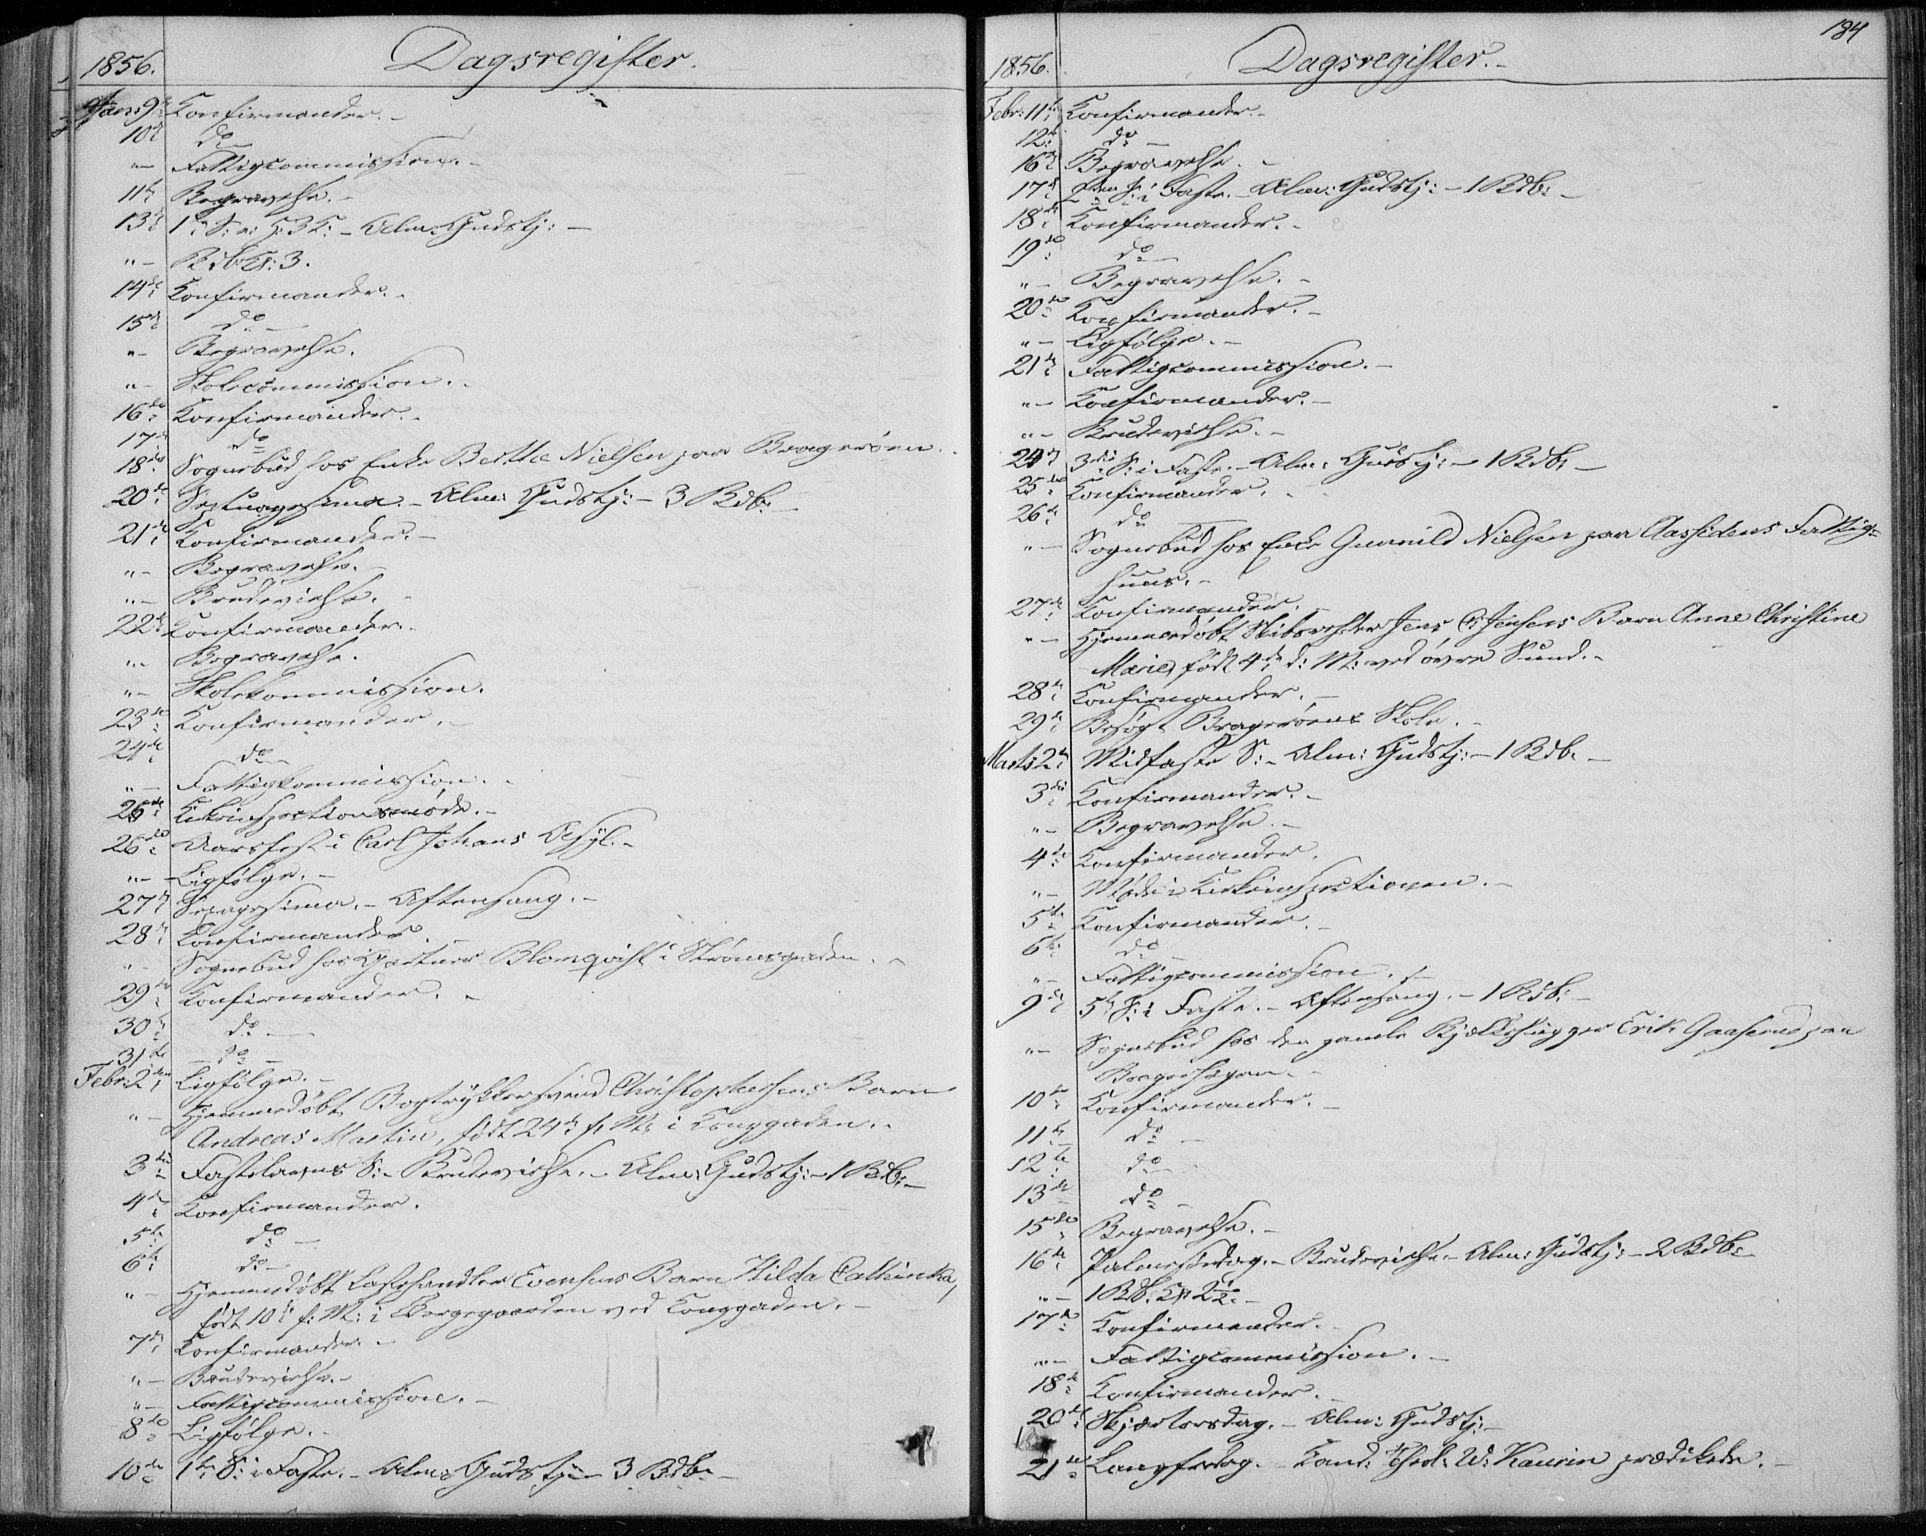 1856. Dagsregister.
Jan: 9de Konfirmander. -
10de do
" - Fattigcommission. -
11te Begravelse. -
13de 1ste S: e: H: 3 K: - Alm: Gudstj: -
" - Rdb: 3.
14de Konfirmander. -
15de do -
" - Begravelse.
" - Skolecommission. -
16de Konfirmander. -
17de do
18de Sognebud hos Enke Berthe Nielsen paa Bragerøen. -
20de Septuagesima. - Alm: Gudstj: - 3 Rdb: -
21de Konfirmander. -
" - Begravelse. -
" - Brudevielse. -
22de Konfirmander. -
" - Begravelse. -
" - Skolekommission.
23de Konfirmander. -
24de do
" - Fattigkommission. -
26de Kirkeinspectionsmøde. -
26de Aarsfest i Carl Johans Asyl. -
" - Ligfølge. -
27de Sexagesima. - Aftensang. -
28de Konfirmander. -
" - Sognebud hos Gjartner Blomqvist i Strømsgaden. -
29de Konfirmander. -
30te do -
31te do -
Febr: 2den Ligfølge. -
" - Hjemmedøbt Bogtrykkersvend Christophersens Barn
Andreas Martin, født 24de f: M: i Konggaden. -
3die Fastelavns S: - Brudevielse. - Alm: Gudstj: - 1 Rdb: -
4de Konfirmander.
5te do -
6te do -
" - Hjemmedøbt Losjehandler Evensens Barn Hilda Cathinka,
født 10de f: M: i Bergegaarden ved Konggaden. -
7de Konfirmander. -
" - Brudevielse. -
" - Fattigcommission. -
8de Ligfølge. -
10de 1ste S: i Faste. - Alm: Gudstj: - 3 Rdb: -
184
1856. Dagsregister. -
Febr: 11te Konfirmander. -
12te do -
16de Begravelse. -
17de 2den S: i Faste. - Alm: Gudstj: - 1 Rdb: -
18de Konfirmander. -
19de do
" - Begravelse. -
20de Konfirmander. -
" - Ligfølge. -
21de Fattigcommission. -
" - Konfirmander. -
" - Brudevielse. -
24de 3die S: i Faste. - Alm: Gudstj: - 1 Rdb: -
25de Konfirmander. -
26de do
" - Sognebud hos Enke Gunnild Nielsen paa Aassidens Fattig=
huus. -
27de Konfirmander. -
" - Hjemmedøbt Skibsrheder Jens C: Jensens Barn Anne Christine
Marie, født 4de d: M: ved øvre Sund. -
28de Konfirmander. -
29de Besøgt Bragerøens Skole. -
Marts 2den Midfaste S: - Alm: Gudstj: - 1 Rdb: -
3die Konfirmander. -
" - Begravelse. -
4de Konfirmander.
" - Møde i Kirkeinspectionen. -
5te Konfirmander. -
6te do -
" - Fattigcommission. -
9de 5te S: i Faste. - Aftensang. - 1 Rdb: -
" - Sognebud hos den gamle Bjælkehugger Erik Gaaserud paa
Bragerhagen. -
10de Konfirmander. -
11te do -
12te do -
13de do -
15de Begravelse. -
16de Palmesøndag. - Brudevielse. - Alm: Gudstj: - 2 Rdb: -
" - 1 Rdb:
17de Konfirmander. -
" - Fattigcommission. -
18de Konfirmander. -
20de Skjærtorsdag. - Alm: Gudstj: -
21de Langfredag. - Kand: Theol: W: Kaurin prædikede. -